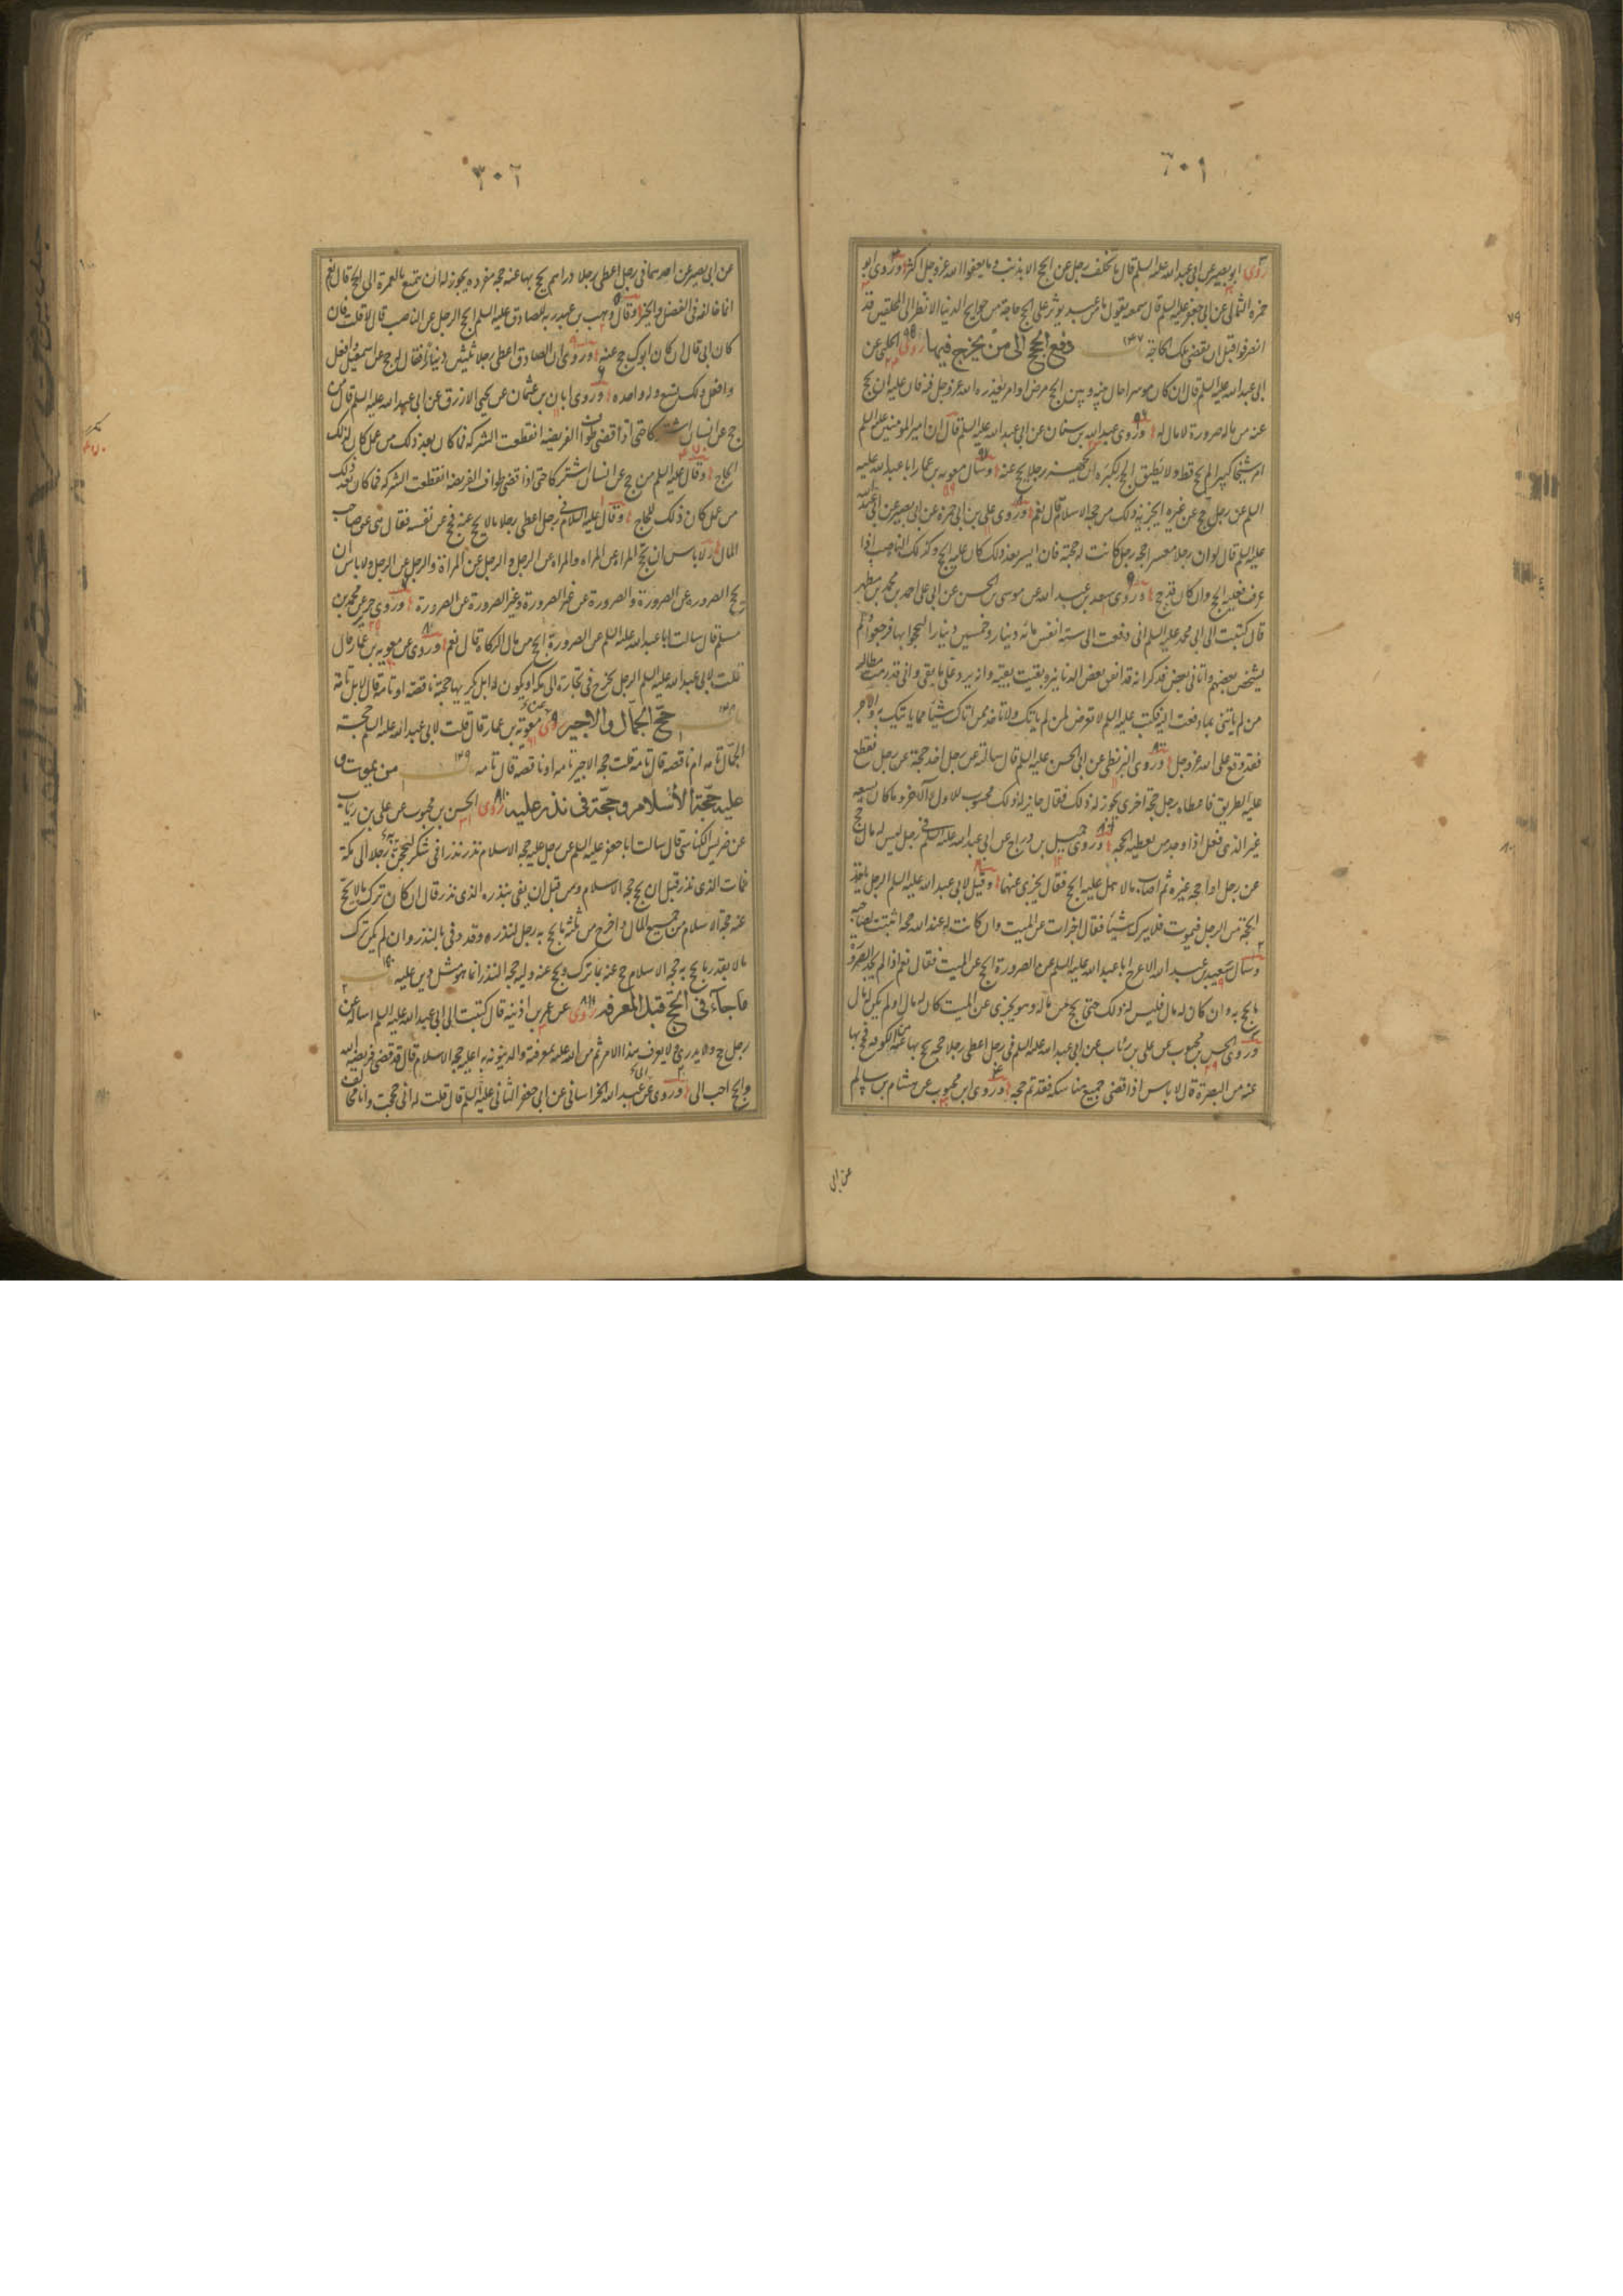 ٦٠١
روى ابو بصير عن ابى عبد الله عليه السلم قال ما تخلف رجل عن الحج الا بذنب وما يعفوا الله عز وجل اكثر وروى ابو
حمزة الثمالى عن ابى جعفر عليه السلم قال سمعته يقول ما من عبد يؤثر على الحج حاجة من حوايج الدنيا الا نظر الى المحلقين قد
انصرفوا قبل ان يقضى تلك الحاجة باب ١٤٧ دفع الحج الى من يخرج فيها روى الحلبى عن
ابى عبد الله عليه السلم قال ان كان موسرا حال بينه وبين الحج مرض او امر يعذره الله عز وجل فيه فان عليه ان يحج
عنه من ماله صرورة لا مال له وروى عبد الله بن سنان عن ابى عبد الله عليه السلم قال ان امير المومنين عليه السلم
امر شيخا كبيرا لم يحج قط ولا يطيق الحج لكبره ان يجهز رجلا يحج عنه وسال معويه بن عمار ابا عبد الله عليه
السلم عن رجل حج عن غيره ايجزيه ذلك من حجة الاسلام قال نعم وروى على بن ابى حمزه عن ابى بصير عن ابى عبد الله
عليه السلم قال لو ان رجلا معسرا احجه رجل كانت له حجته فان ايسر بعد ذلك كان عليه الحج وكذلك الناصب اذا
عرف فعليه الحج وان كان قد حج وروى سعد بن عبد الله عن موسى بن الحسن عن ابى على احمد بن محمد بن مطهر
قال كتبت الى ابى محمد عليه السلم انى دفعت الى ستة انفس مائه دينار وخمسين دينارا ليحجوا بها فرجعوا ولم
يشخص بعضهم واتانى بعض فذكر انه قد انفق بعض الدنانير وبقيت بقيه وانه يرد على ما بقى وانى قد رمت مطالبه
من لم ياتنى بما دفعت اليه فكتب عليه السلم لا تعرض لمن لم ياتك ولا تاخذ ممن اتاك شيئا مما ياتيك به والاجر
فقد وقع على الله عز وجل وروى البزنطى عن ابى الحسن عليه السلم قال سالته عن رجل اخذ حجة عن رجل فقطع
عليه الطريق فاعطاه رجل حجة اخرى يجوز له ذلك فقال جايز له ذلك محسوب للاول والآخر وما كان يسعه
غير الذى فعل اذا وجد من يعطيه الحجة وروى جميل بن دراج عن ابى عبد الله عليه السلم فى رجل ليس له مال حج
عن رجل او احجه غيره ثم اصاب مالا هل عليه الحج فقال يجزى عنهما وقيل لابى عبد الله عليه السلم الرجل ياخذ
الحجة من الرجل فيموت فلا يترك شيئا فقال اجزات عن الميت وان كانت له عند الله حجة اثبتت لصاحبه
وسال سعيد بن عبد الله الاعرج ابا عبد الله عليه السلم عن الصرورة ايحج عن الميت فقال نعم اذا لم يجد الصرورة
ما يحج به وان كان له مال فليس له ذلك حتى يحج من ماله وهو يجزى عن الميت كان له مال او لم يكن له مال
وروى الحسن بن محبوب عن على بن رئاب عن ابى عبد الله عليه السلم فى رجل اعطى رجلا حجة يحج بها عنه من الكوفة فحج بها
عنه من البصرة قال لا باس اذا قضى جميع مناسكه فقد تم حجه وروى ابن محبوب عن هشام بن سالم
عن ابى
٣٠٦
عن ابى بصير عن احدهما فى رجل اعطى رجلا دراهم يحج بها عنه حجة مفرده يجوز له ان يتمتع بالعمرة الى الحج قال نعم
انما خالفه فى الفضل والخير وقال وهب بن عبد ربه للصادق عليه السلم ايحج الرجل عن الناصب قال لا قلت فان
كان ابى قال ان كان ابوك حج عنه وروى ان الصادق اعطى رجلا ثلثين دينارا فقال له حج عن اسمعيل وافعل
وافعل ولك تسع وله واحده وروى ابان بن عثمان عن يحيى الازرق عن ابى عبد الله عليه السلم قال من
حج عن انسان اشتركا حتى اذا قضى طواف الفريضه انقطعت الشركه فما كان بعد ذلك من عمل كان لذلك
الحاج وقال عليه السلم من حج عن انسان اشتركا حتى اذا قضى طواف الفريضه انقطعت الشركه فما كان بعد ذلك
من عمل كان ذلك للحاج وقال عليه السلام فى رجل اعطى رجلا مالا يحج عنه فحج عن نفسه فقال هى عن صاحب
المال ولا باس ان تحج المراة عن المراه والمراه عن الرجل والرجل عن المراة والرجل عن الرجل ولا باس ان
يحج الصروره عن الصرورة والصرورة عن غير الصرورة وغير الصرورة عن الصرورة وروى حريز عن محمد بن
مسلم قال سالت ابا عبد الله عليه السلم عن الصرورة ايحج من مال الزكاة قال نعم وروى عن معويه بن عمار قال
قلت لابى عبد الله عليه السلم الرجل يخرج فى تجارة الى مكه او يكون له ابل فيكريها حجته ناقصة او تامة قال لا بل تامة
باب ١٤٨ حج الجمال والاجير روى معوية بن عمار قال قلت لابى عبد الله عليه السلم حجة
الجمال تامه ام ناقصه قال تامه قلت حجة الاجير تامه او ناقصه قال تامه باب ١٤٩ من يموت و
عليه حجة الاسلام وحجة فى نذر عليه روى الحسن بن محبوب عن على بن رئاب
عن ضريس الكناسى قال سالت ابا جعفر عليه السلم عن رجل عليه حجة الاسلام نذر نذرا فى شكر ليحجن به رجلا الى مكة
فمات الذى نذر قبل ان يحج حجة الاسلام ومن قبل ان يفى بنذره الذى نذر قال ان كان ترك مالا يحج
عنه حجة الاسلام من جميع المال واخرج من ثلثه ما يحج به رجل لنذره وقد وفى بالنذر وان لم يكن ترك
مالا بقدر ما يحج به حجة الاسلام حج عنه بما ترك ويحج عنه وليه حجة النذر انما هو مثل دين عليه باب ١٥٠
ما جاء فى الحج قبل المعرفه روى عن عمر بن اذنية قال كتبت الى ابى عبد الله عليه السلم اساله عن
رجل حج ولا يدرى ولا يعرف هذا الامر ثم من الله عليه بمعرفته والدينونة به اعليه حجة الاسلام قال قد قضى فريضه الله
والحج احب الى وروى عن ابى عبد الله الخراسانى عن ابى جعفر الثانى عليه السلم قال قلت له انى حججت وانا مخالف